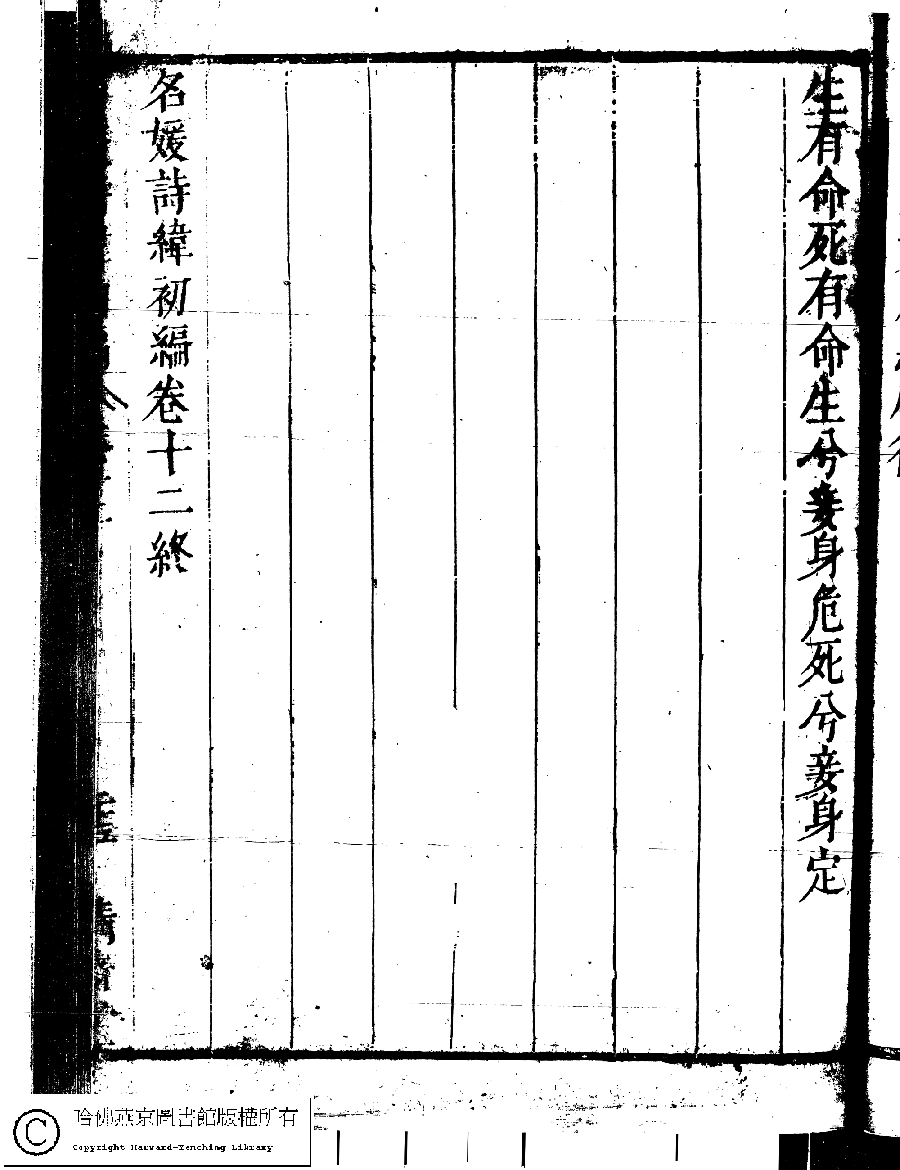 生有命死有命生兮妾身危死兮妾身定
名媛詩緯初編卷十二終
哈佛燕京圖書館版權所有
Copyright Harvard-Yenching Library